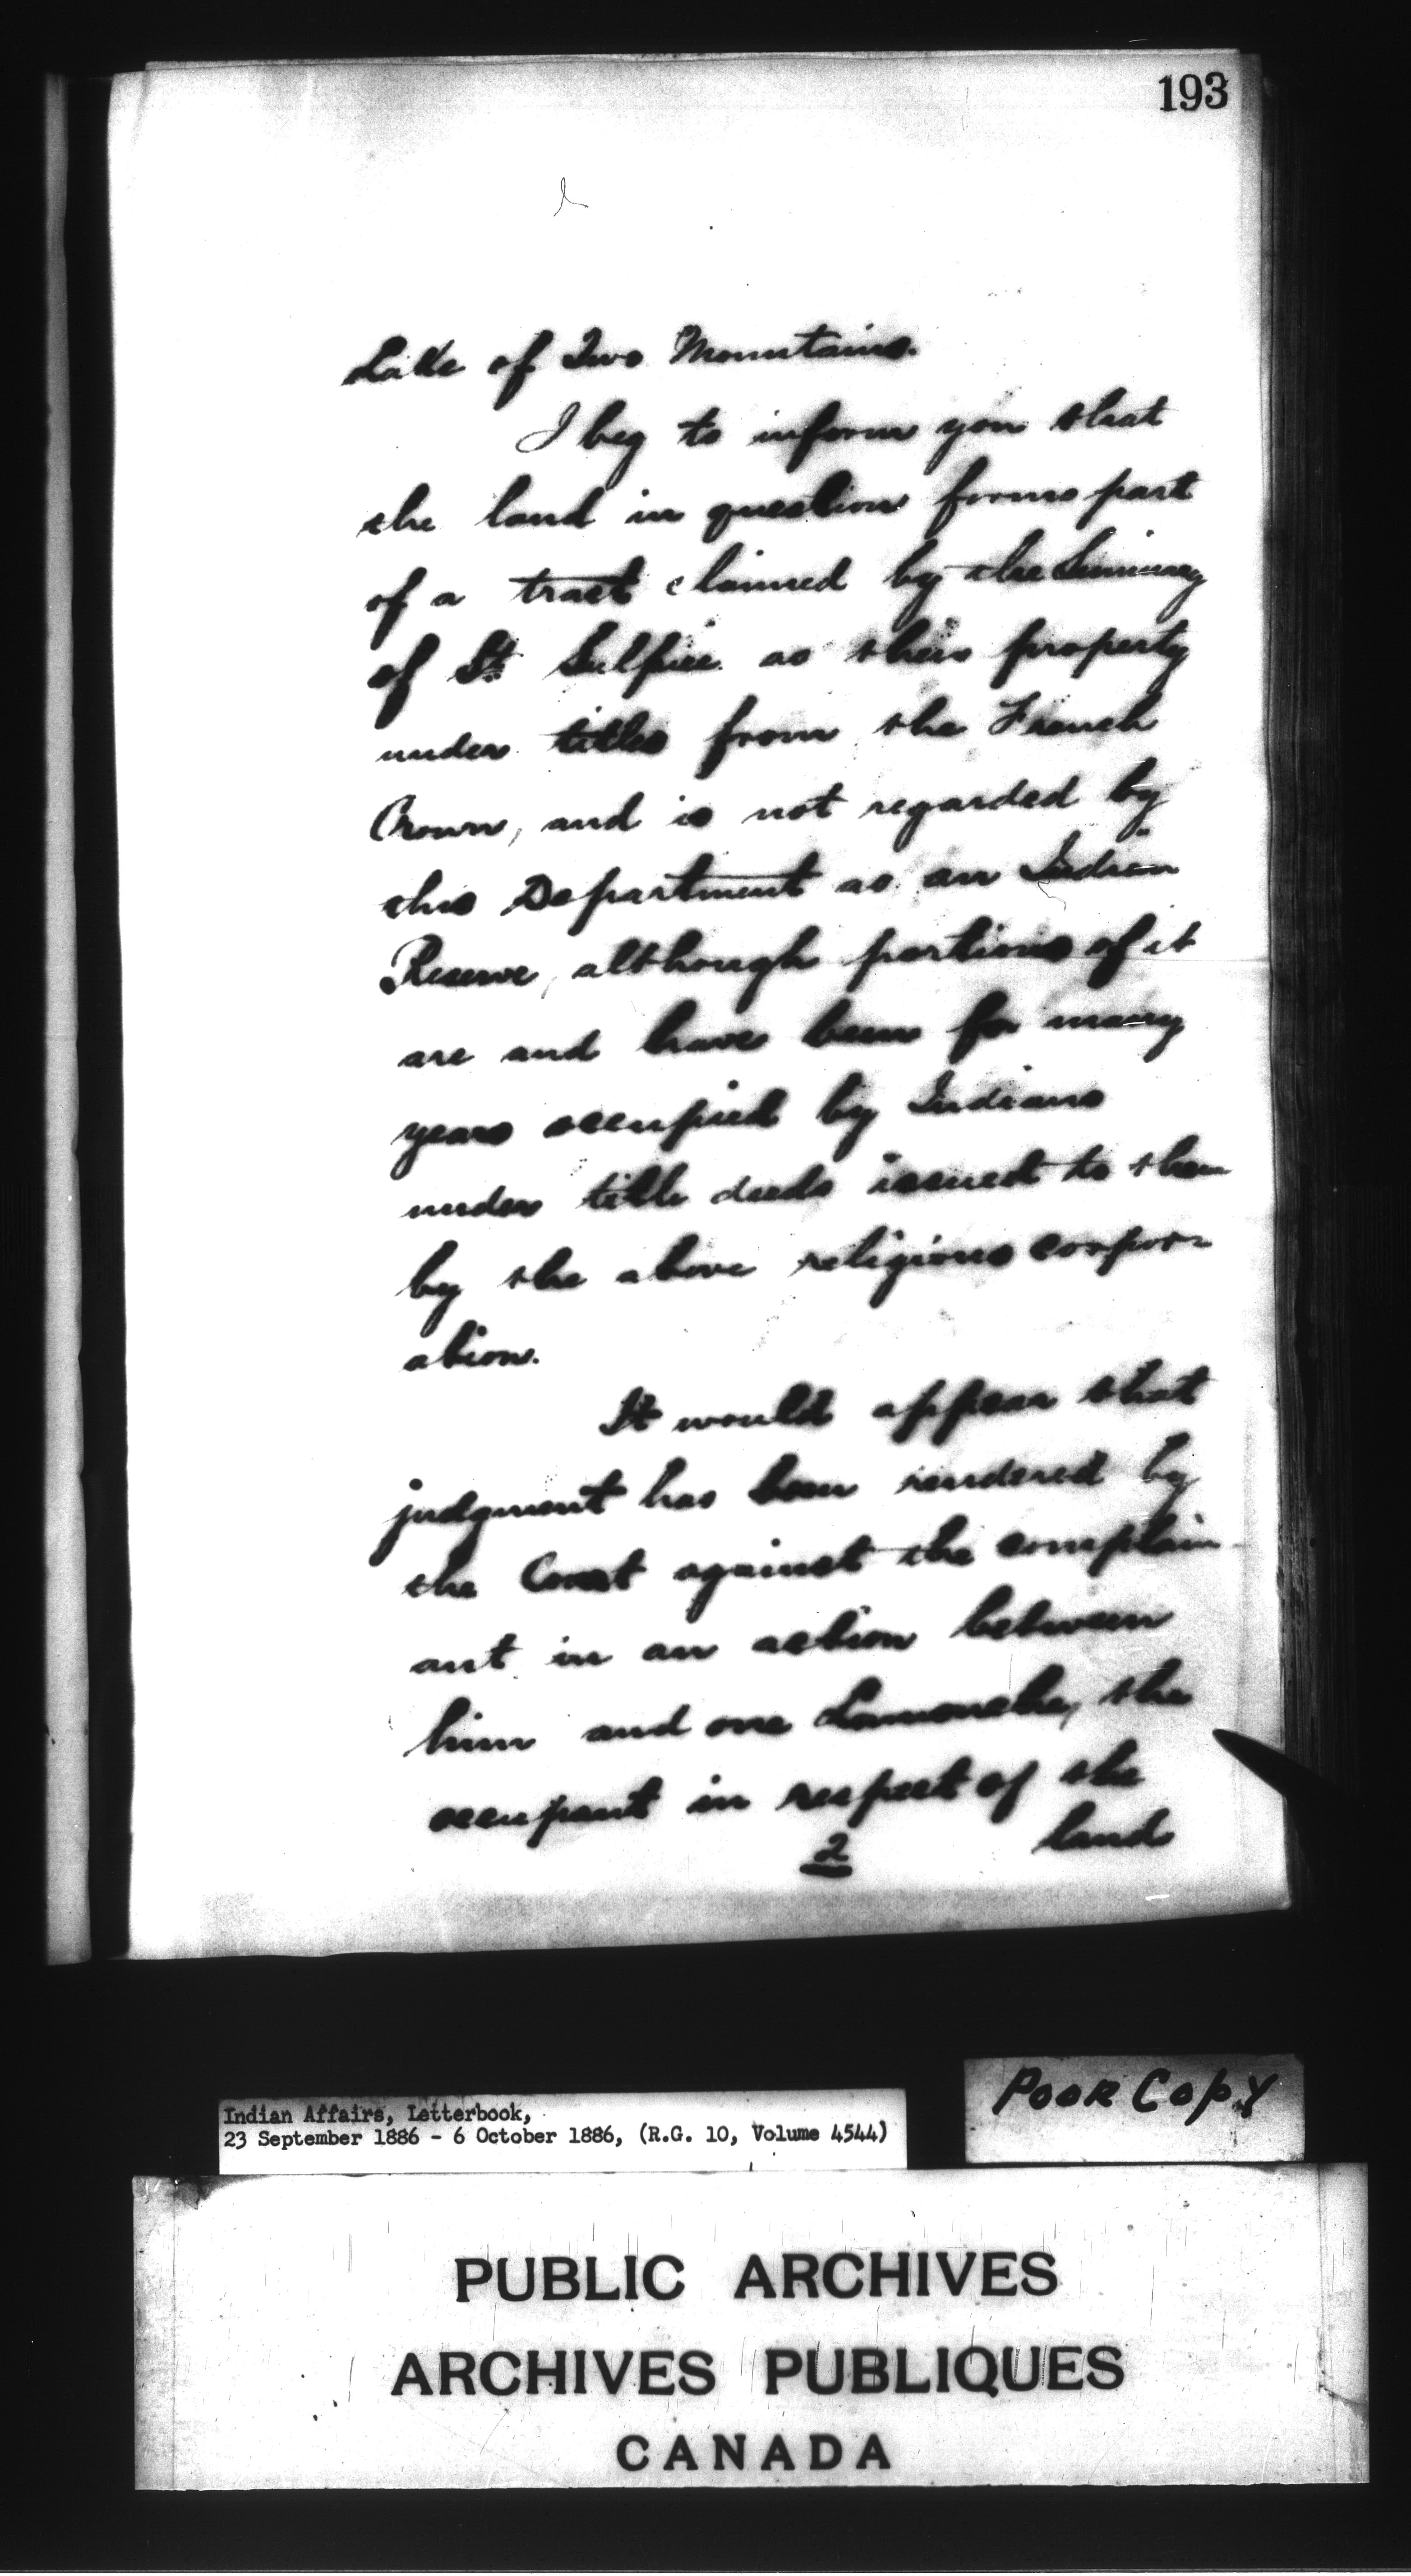 193
Lake of Two Mountains.
I beg to inform you that
the land in question forms part
of a tract claimed by the Seminary
of St. Sulpice as their property
under titles from the French
Crown, and is not regarded by
this Department as an Indian
Reserve, although portions of it
are and have been for many
years occupied by Indians
under title deeds issued to them
by the above religious corpor-
ation.
It would appear that
judgment has been rendered by
the Court against the complain-
ant in an action between
him and one Lamouche, the
occupant in respect of the
2 land
POOR COPY
Indian Affairs, Letterbook,
23 September 1886 - 6 October 1886, (R.G. 10, Volume 4544)
PUBLIC ARCHIVES
ARCHIVES PUBLIQUES
CANADA